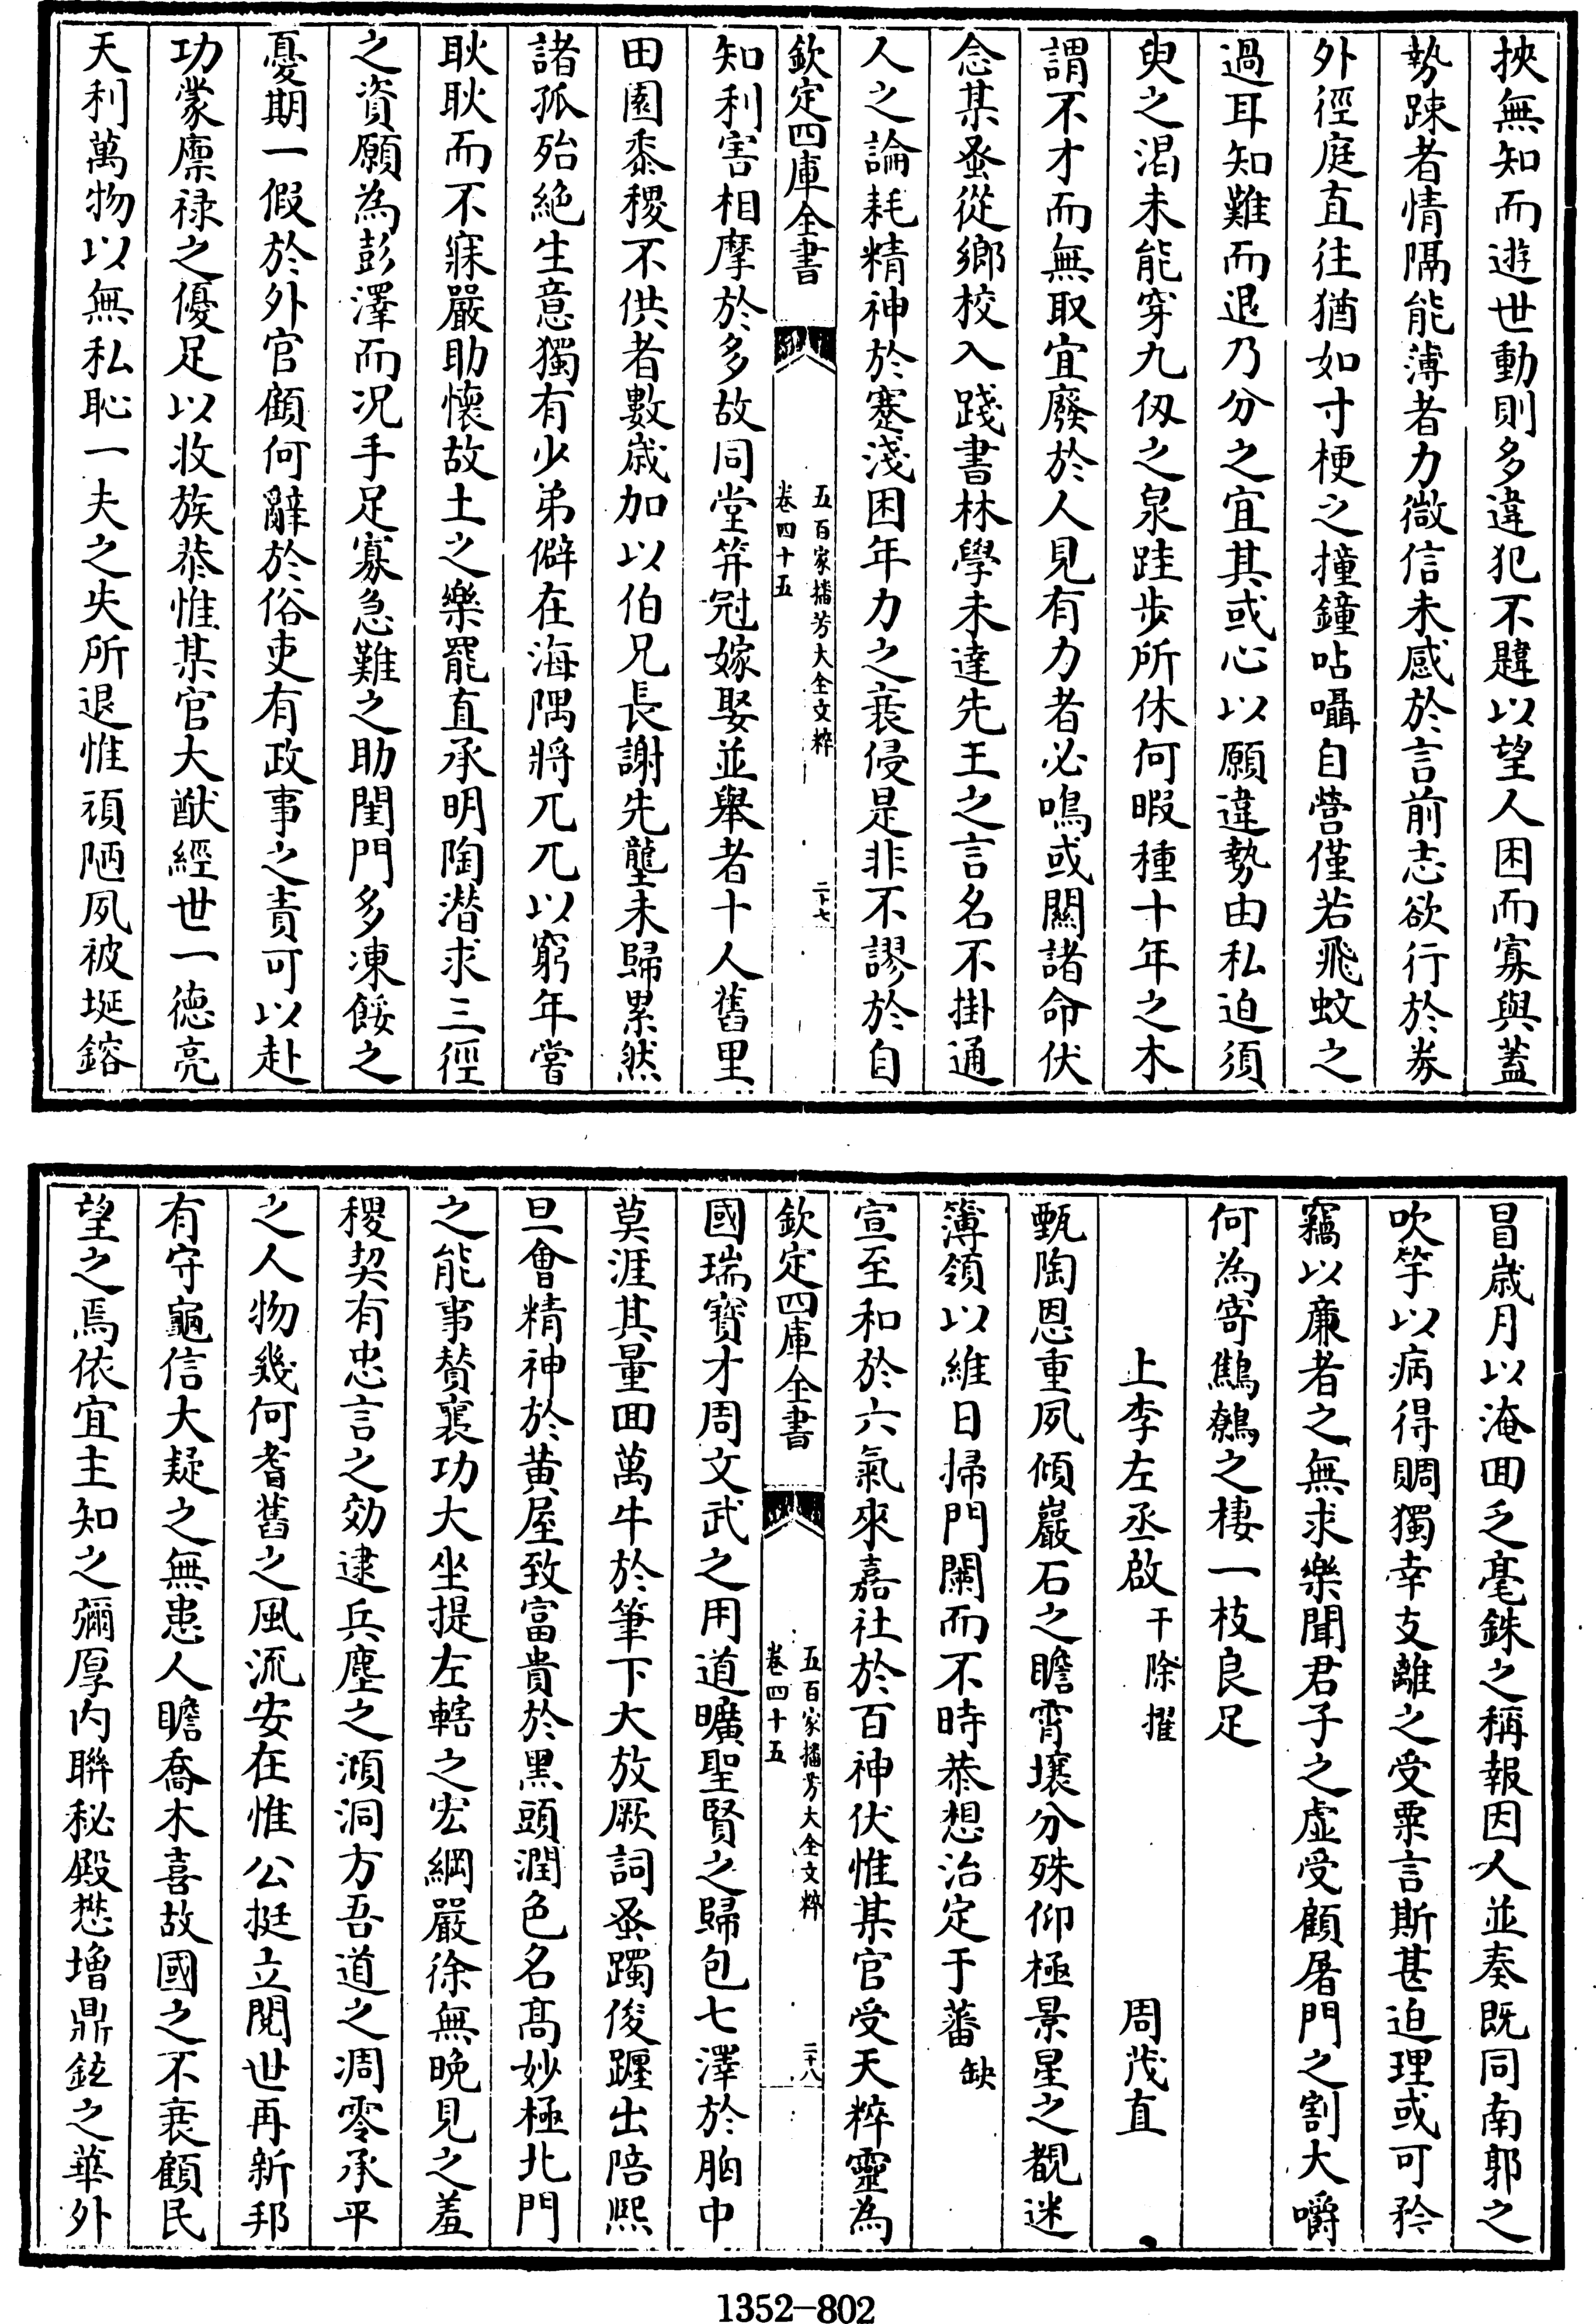 挾無知而遊世動則多違犯不韙以望人困而寡與蓋
勢踈者情隔能薄者力微信未感於言前志欲行於券
外徑庭直往猶如寸梗之撞鐘呫囁自營僅若飛蚊之
過耳知難而退乃分之宜其或心以願違勢由私迫須
臾之渴未能穿九仭之泉跬步所休何暇種十年之木
謂不才而無取宜廢於人見有力者必鳴或關諸命伏
念某蚤從鄉校入踐書林學未達先王之言名不掛通
人之論耗精神於蹇淺困年力之衰侵是非不謬於自
欽定四庫全書
五百家播芳大全文粹
卷四十五
二十七
知利害相摩於多故同堂笄冠嫁娶並舉者十人舊里
田園黍稷不供者數歲加以伯兄長謝先壟未歸累然
諸孤殆絶生意獨有少弟僻在海隅將兀兀以窮年嘗
耿耿而不寐嚴助懷故土之樂罷直承明陶潜求三徑
之資願為彭澤而况手足寡急難之助閨門多凍餒之
憂期一假於外官顧何辭於俗吏有政事之責可以赴
功蒙廪禄之優足以收族恭惟某官大猷經世一德亮
天利萬物以無私恥一夫之失所退惟頑陋夙被埏鎔
冒歲月以淹囬乏毫銖之稱報因人並奏既同南郭之
吹竽以病得賙獨幸支離之受粟言斯甚迫理或可矜
竊以廉者之無求樂聞君子之虚受顧屠門之割大嚼
何為寄鷦鷯之棲一枝良足
上李左丞啟干除擢 周茂直
甄陶恩重夙傾巖石之瞻霄壤分殊仰極景星之覩迷
簿領以維日掃門闌而不時恭想治定于蕃缺
宣至和於六氣來嘉社於百神伏惟某官受天粹靈為
欽定四庫全書
五百家播芳大全文粹
卷四十五
二十八
國瑞寳才周文武之用道曠聖賢之歸包七澤於胸中
莫涯其量囬萬牛於筆下大放厥詞蚤躅俊躔出陪熙
旦會精神於黄屋致富貴於黑頭潤色名髙妙極北門
之能事賛襄功大坐提左轄之宏綱嚴徐無晩見之羞
稷契有忠言之効逮兵塵之澒洞方吾道之凋零承平
之人物幾何耆舊之風流安在惟公挺立閱世再新邦
有守龜信大疑之無患人瞻喬木喜故國之不衰顧民
望之焉依宜主知之彌厚内聨秘殿懋増鼎鉉之華外
1352-802